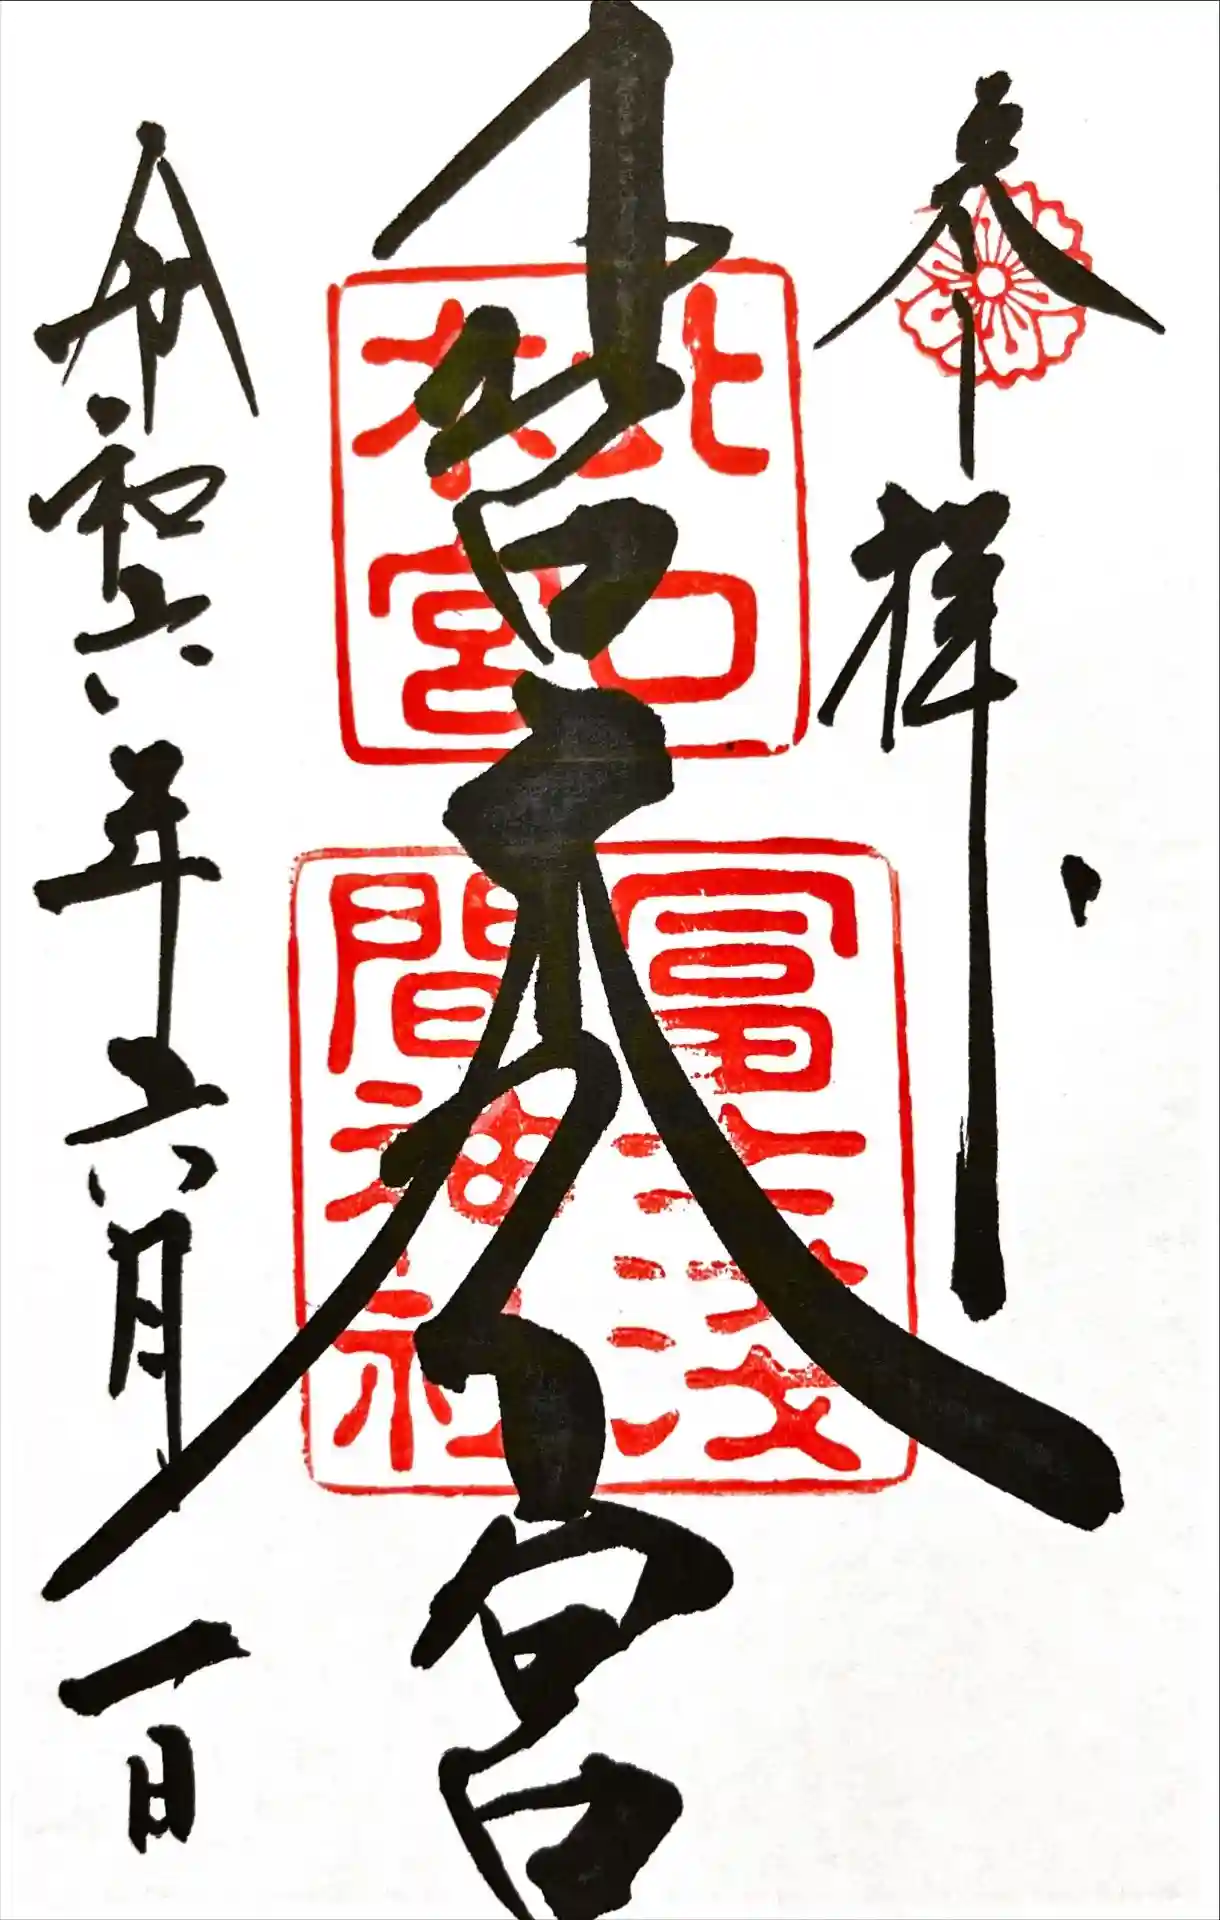 奉拝
北口本宮
北口
本宮
冨士浅
間神社
令和六年六月一日